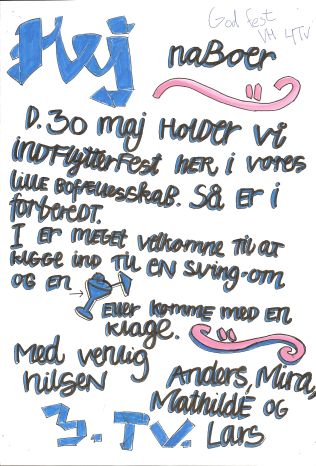 Hej
God fest
VH 4TV
naBoer
D. 30 maj HOLDER Vi
iNDFlYtterFest HER i vores
lille Bofællesskab. Så er i
forberedt.
I er MEGET velkomne Til at
KIGGE iND TIL EN Sving-om
OG EN
Eller KOMME MED EN
KLAGE.
Med venlig
hilsEN
Anders, Mira,
MATHILDE OG
Lars
3. TV.